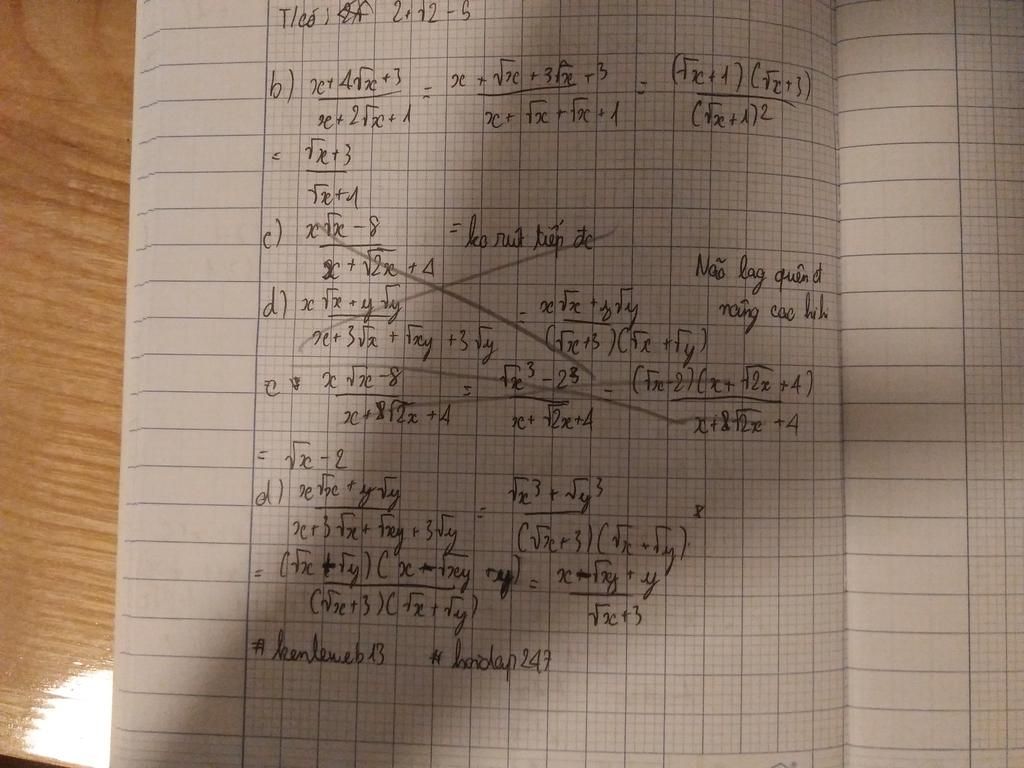 2+√2-5
b) (x+4√x+3)/(x+2√x+1) = (x+√x+3√x+3)/(x+√x+√x+1) = ((√x+1)(√x+3))/((√x+1)²)
= (√x+3)/(√x+1)
c) (x√x-8)/(x+√2x+4) = ko rút tiếp đc
Não lag quên đ
d) (x√x+y√y)/(x+3√x+√xy+3√y) = (x√x+y√y)/((√x+3)(√x+√y))
c (x√x-8)/(x+8√2x+4) = (√x³-2³)/(x+√2x+4) = ((√x-2)(x+√2x+4))/(x+8√2x+4)
= √x-2
d) (x√x+y√y)/(x+3√x+√xy+3√y) = (√x³+√y³)/((√x+3)(√x+√y))
= ((√x+√y)(x-√xy+y))/((√x+3)(√x+√y)) = (x-√xy+y)/(√x+3)
# kenleweb13 # hoidap247